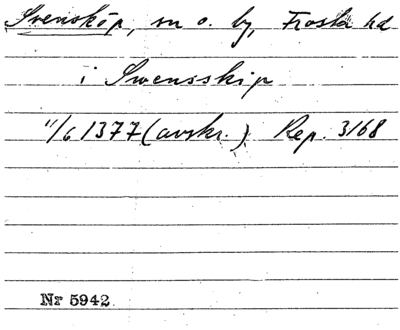 Svensköp, sn o. by, Frosta hd
i Swensskip
11/6 1377 (avskr.) Rep. 3168
Nr 5942